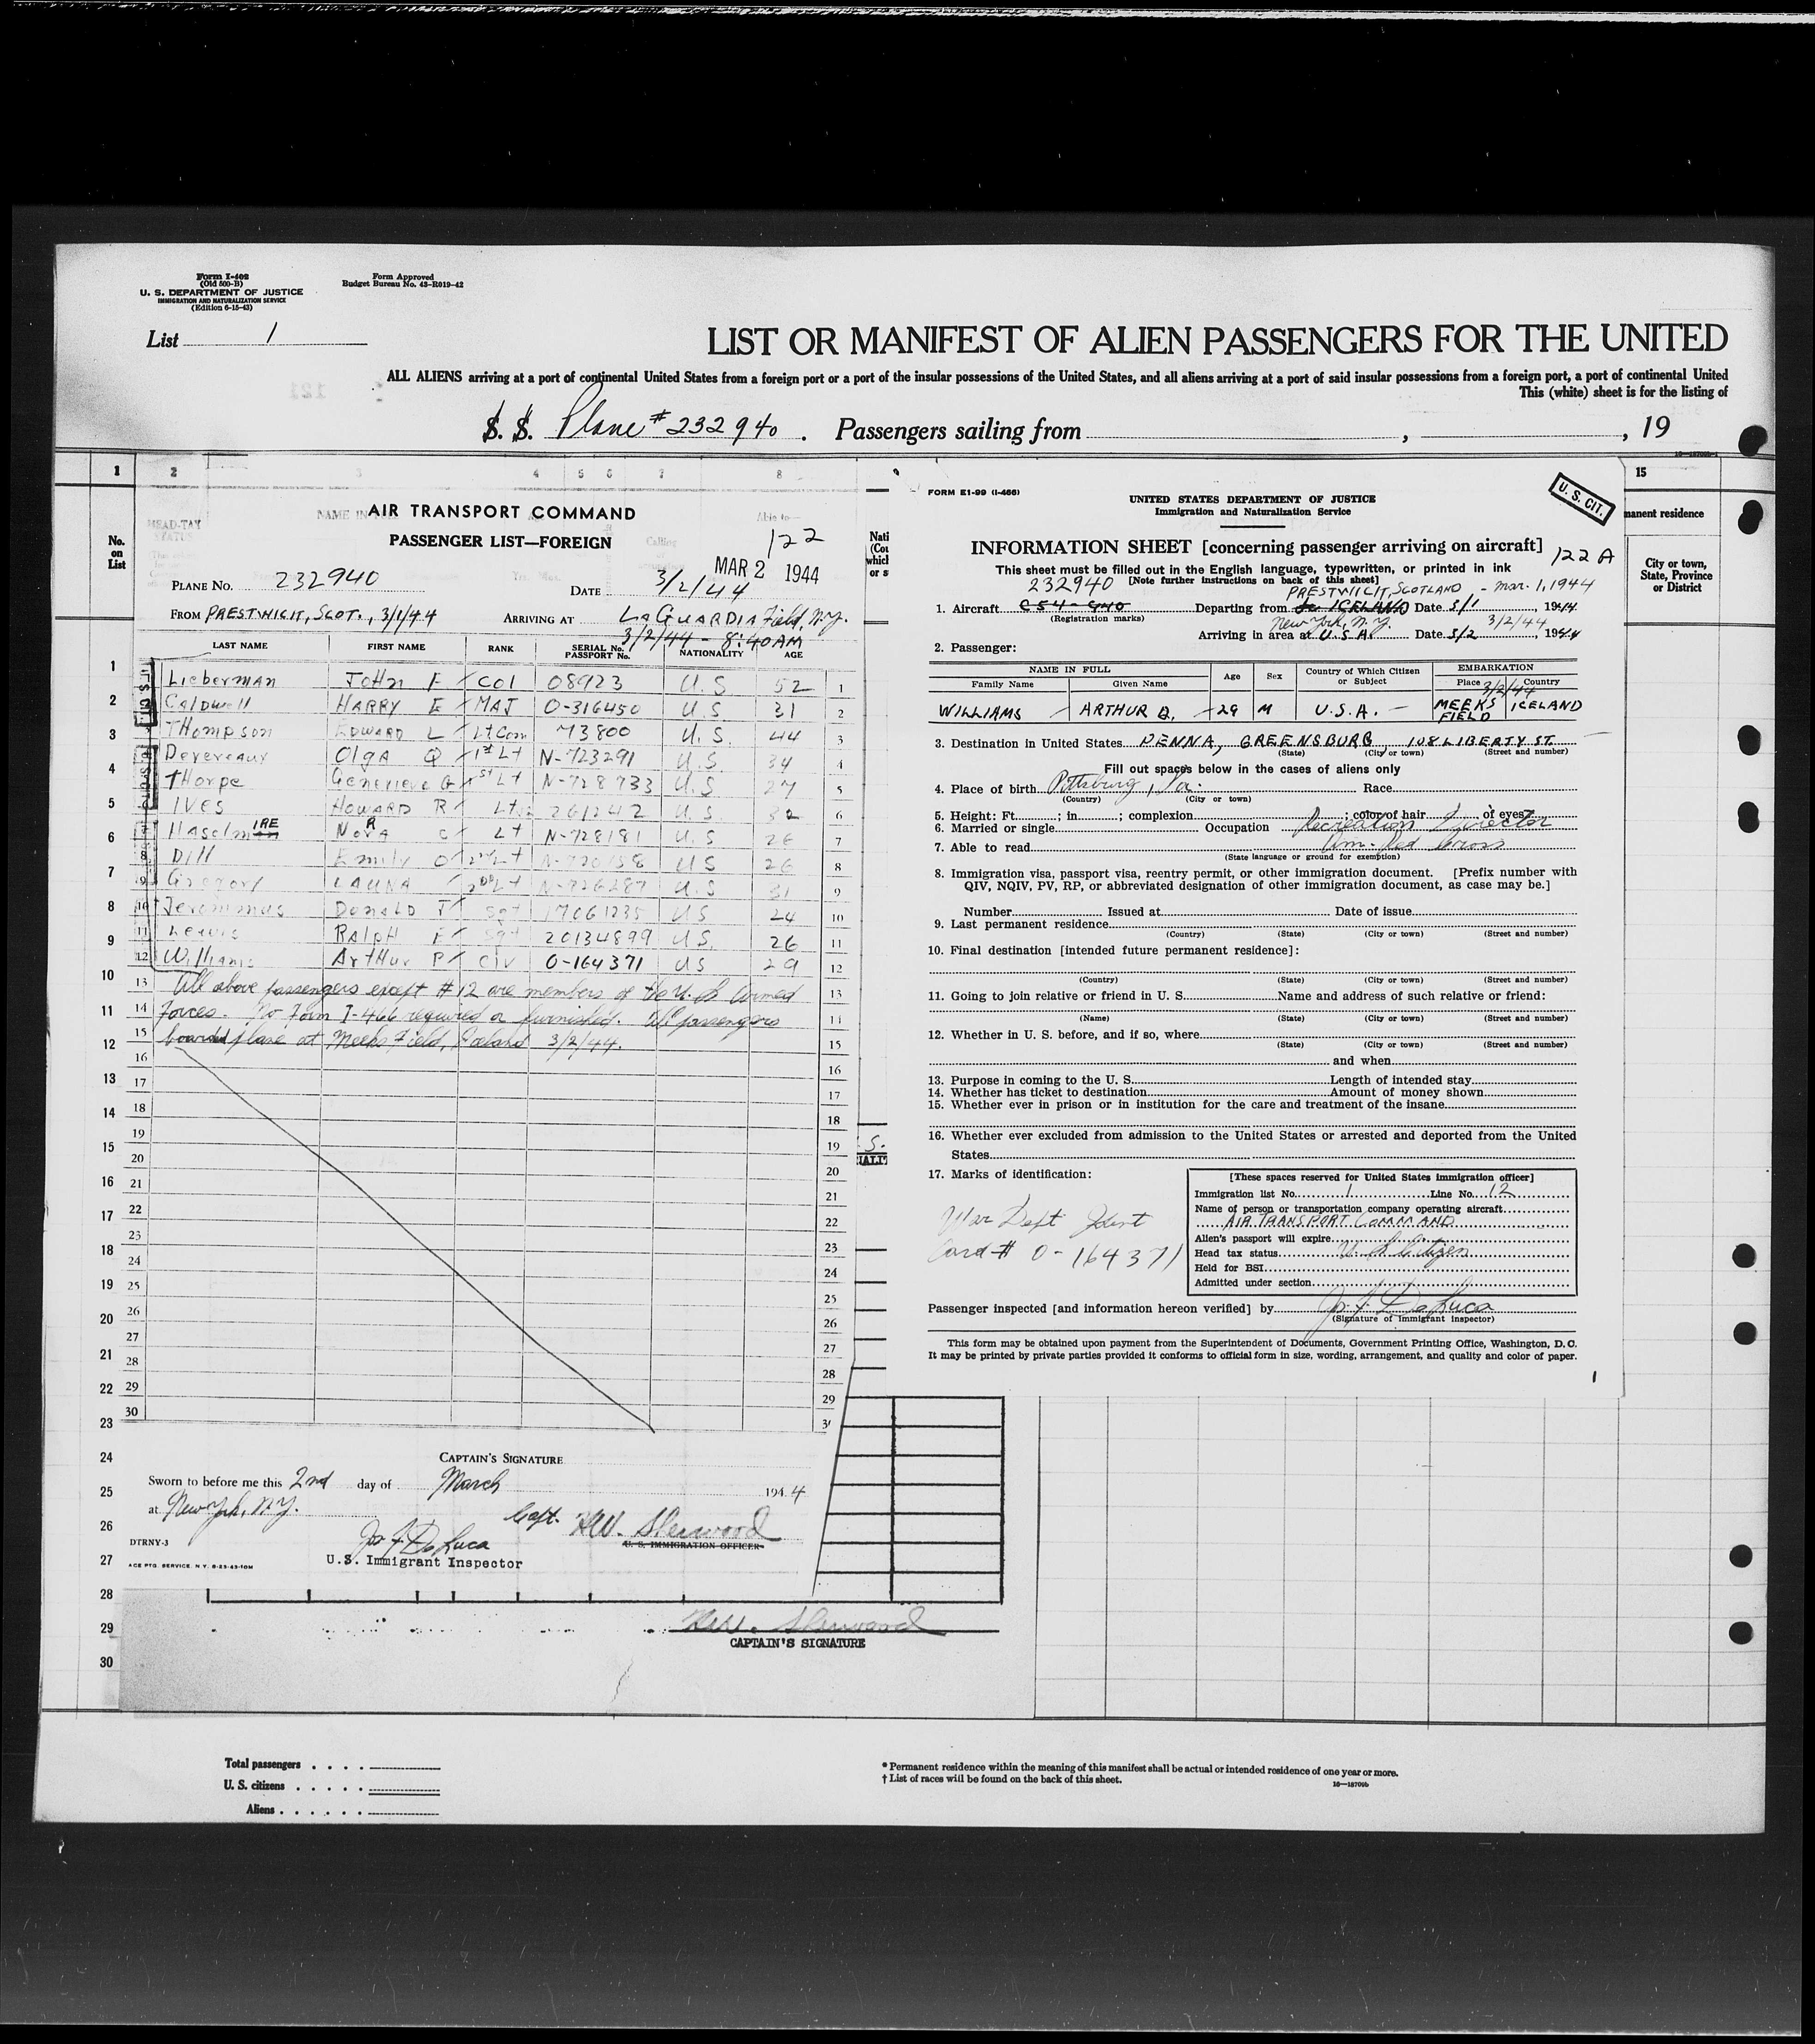 Form I-402
(Old 500-B)
U. S. DEPARTMENT OF JUSTICE
IMMIGRATION AND NATURALIZATION SERVICE
(Edition 6-15-43)
Form Approved
Budget Bureau No. 43-R019-42
List 1
LIST OR MANIFEST OF ALIEN PASSENGERS FOR THE UNITED
ALL ALIENS arriving at a port of continental United States from a foreign port or a port of the insular possessions of the United States, and all aliens arriving at a port of said insular possessions from a foreign port, a port of continental United
This (white) sheet is for the listing of
S. S. Plane # 232940 . Passengers sailing from , , 19
1 2 3 4 5 6 7 8 15
No. on List
HEAD-TAX STATUS
manent residence
City or town, State, Province or District
AIR TRANSPORT COMMAND
PASSENGER LIST—FOREIGN
122
MAR 2 1944
PLANE NO. 232940 DATE 3/2/44
FROM PRESTWICIT, SCOT., 3/1/44 ARRIVING AT LaGUARDIA Field, N.Y.
3/2/44 - 8:40 AM
LAST NAME FIRST NAME RANK SERIAL No. PASSPORT No. NATIONALITY AGE
1 Lieberman JOHn F COl 08923 U.S. 52 1
2 CalDwell HARRY E MAJ O-316450 U.S 31 2
3 THompson EDWARD L Lt Com 73800 U.S. 44 3
Devereaux OlgA Q 1st Lt N-723291 U.S. 34 4
THorpe Genevieve G 1st Lt N-728733 U.S 27 5
IVES HOWARD R Lt. 261242 U.S 32 6
7 Haselmire NoRA C Lt N-728181 U.S 26 7
8 Dill Emily O 2nd Lt N-720158 U S 26 8
9 Gregory LAUNA 2nd Lt N-726287 U.S 31 9
10 Jerommas Donald J Sgt 17061235 US 24 10
11 Lewis RAlpH F Sgt 20134899 US. 26 11
12 Williams ArtHur P CIV O-164371 US 29 12
13 All above passengers except #12 are members of the U.S. Armed 13
14 Forces. No Form I-466 required or furnished. All passengers 14
15 boarded plane at Meeks Field, Iceland 3/2/44. 15
16 16
17 17
18 18
19 19
20 20
21 21
22 22
23 23
24 24
25 25
26 26
27 27
28 28
29 29
30
CAPTAIN'S SIGNATURE
Sworn to before me this 2nd day of March 1944
at New York, N.Y.
Capt. H.W. Sherwood
U. S. IMMIGRATION OFFICER
Jos. F. DeLuca
U.S. Immigrant Inspector
DTRNY-3
ACE PTG. SERVICE. N Y. 8-25-43-10M
H.W. Sherwood
CAPTAIN'S SIGNATURE
FORM E1-99 (I-466)
U. S. CIT.
UNITED STATES DEPARTMENT OF JUSTICE
Immigration and Naturalization Service
INFORMATION SHEET [concerning passenger arriving on aircraft]
122 A
This sheet must be filled out in the English language, typewritten, or printed in ink
[Note further instructions on back of this sheet]
232940 PRESTWICIT, SCOTLAND - Mar. 1, 1944
1. Aircraft C54-940 Departing from ICELAND Date 3/1, 1944
(Registration marks)
New York, N.Y. 3/2/44
Arriving in area at U.S.A. Date 3/2, 1944
2. Passenger:
NAME IN FULL Age Sex Country of Which Citizen or Subject EMBARKATION
Family Name Given Name Place Country
3/2/44
WILLIAMS ARTHUR P. 29 M U.S.A. MEEKS FIELD ICELAND
3. Destination in United States PENNA, GREENSBURG 108 LIBERTY ST.
(State) (City or town) (Street and number)
Fill out spaces below in the cases of aliens only
4. Place of birth Pittsburg, Pa. Race
(Country) (City or town)
5. Height: Ft. ; in. ; complexion ; color of hair of eyes
6. Married or single Occupation Recreation Director
7. Able to read Am. Red Cross
(State language or ground for exemption)
8. Immigration visa, passport visa, reentry permit, or other immigration document. [Prefix number with
QIV, NQIV, PV, RP, or abbreviated designation of other immigration document, as case may be.]
Number Issued at Date of issue
9. Last permanent residence
(Country) (State) (City or town) (Street and number)
10. Final destination [intended future permanent residence]:
(Country) (State) (City or town) (Street and number)
11. Going to join relative or friend in U. S. Name and address of such relative or friend:
(Name) (State) (City or town) (Street and number)
12. Whether in U. S. before, and if so, where
(State) (City or town) (Street and number)
and when
13. Purpose in coming to the U. S. Length of intended stay
14. Whether has ticket to destination Amount of money shown
15. Whether ever in prison or in institution for the care and treatment of the insane
16. Whether ever excluded from admission to the United States or arrested and deported from the United
States
17. Marks of identification:
War Dept Ident
Card # O-164371
[These spaces reserved for United States immigration officer]
Immigration list No. 1 Line No. 12
Name of person or transportation company operating aircraft
AIR TRANSPORT COMMAND
Alien's passport will expire
Head tax status U. S. Citizen
Held for BSI
Admitted under section
Passenger inspected [and information hereon verified] by Jos. F. DeLuca
(Signature of immigrant inspector)
This form may be obtained upon payment from the Superintendent of Documents, Government Printing Office, Washington, D. C.
It may be printed by private parties provided it conforms to official form in size, wording, arrangement, and quality and color of paper.
1
Total passengers
U. S. citizens
Aliens
* Permanent residence within the meaning of this manifest shall be actual or intended residence of one year or more.
† List of races will be found on the back of this sheet.
16—18709b